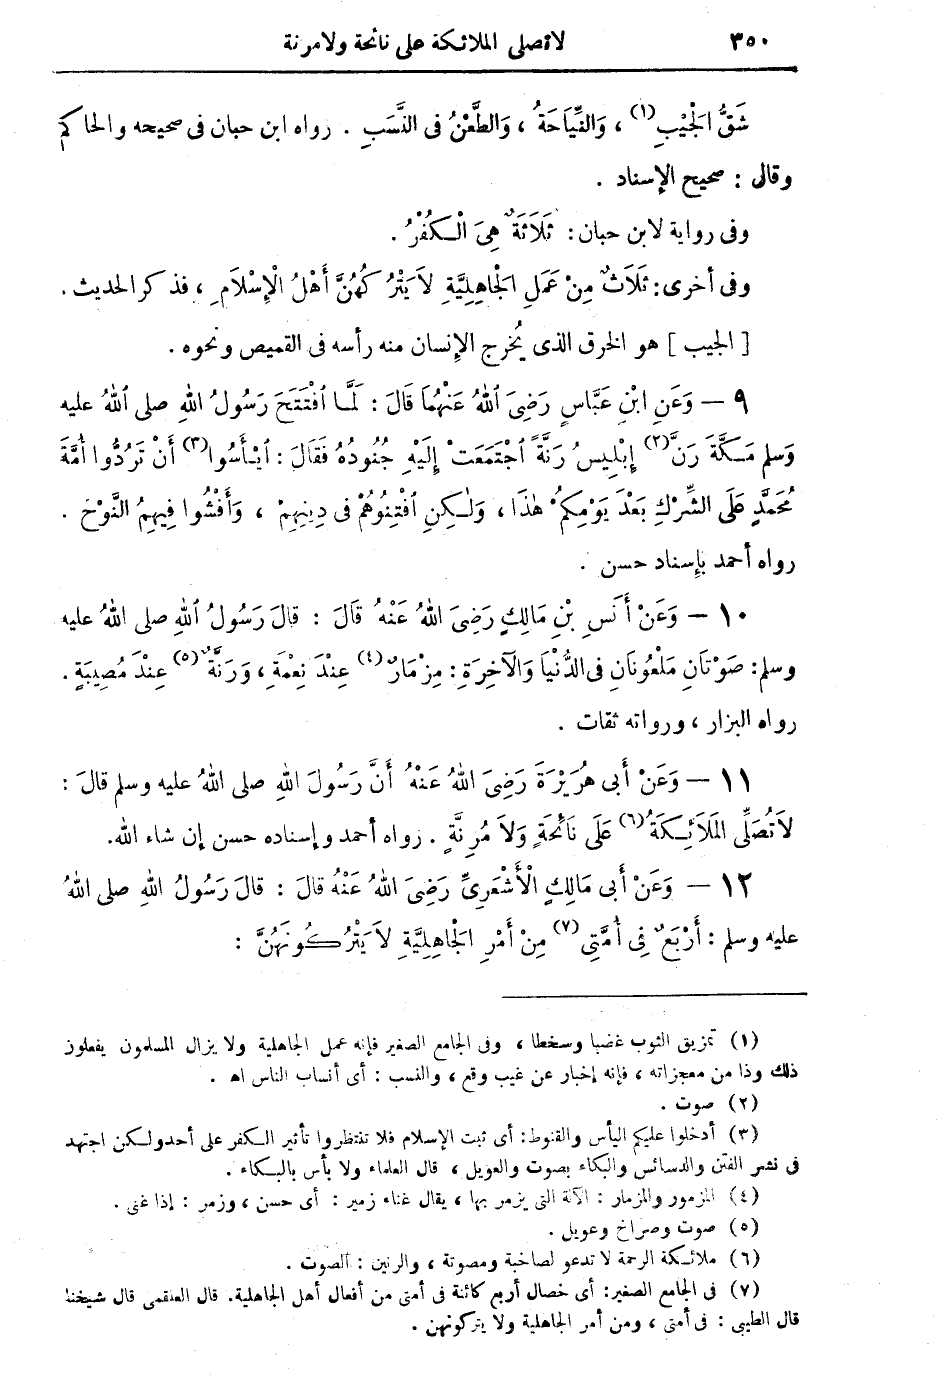 ٣٥٠ لا تصلى الملائكة على نائحة ولا مرنة
شَقُّ الْجَيْبِ (١) ، وَالنِّيَاحَةُ ، وَالطَّعْنُ فى النَّسَبِ . رواه ابن حبان فى صحيحه والحاكم
وقال : صحيح الإسناد .
وفى رواية لابن حبان : ثَلَاثَةٌ هِىَ الْكُفْرُ .
وفى أخرى : ثَلَاثٌ مِنْ عَمَلِ الجَاهِلِيَّةِ لاَ يَتْرُكُهُنَّ أَهْلُ الْإِسْلَامِ ، فذكر الحديث .
[ الجيب ] هو الخرق الذى يُخرج الإنسان منه رأسه فى القميص ونحوه .
٩ — وَعَنِ ابْنِ عَبَّاسٍ رَضِىَ اللهُ عَنْهُمَا قَالَ : لَمَّا افْتَتَحَ رَسُولُ اللهِ صلى اللهُ عليه
وَسلم مَكَّةَ رَنَّ (٢) إِبْلِيسُ رَنَّةً اجْتَمَعَتْ إِلَيْهِ جُنُودُهُ فَقَالَ : ايْأَسُوا (٣) أَنْ تَرُدُّوا أُمَّةَ
مُحَمَّدٍ عَلَى الشِّرْكِ بَعْدَ يَوْمِكُمْ هٰذَا ، وَلٰكِنِ افْتِنُوهُمْ فى دِينِهِمْ ، وَأَفْشُوا فِيهِمُ النَّوْحَ .
رواه أحمد بإسناد حسن .
١٠ — وَعَنْ أَنَسِ بْنِ مَالِكٍ رَضِىَ اللهُ عَنْهُ قَالَ : قَالَ رَسُولُ اللهِ صلى اللهُ عليه
وسلم : صَوْتَانِ مَلْعُونَانِ فى الدُّنْيَا وَالآخِرَةِ : مِزْمَارٌ (٤) عِنْدَ نِعْمَةٍ ، وَرَنَّةٌ (٥) عِنْدَ مُصِيبَةٍ .
رواه البزار ، ورواته ثقات .
١١ — وَعَنْ أَبى هُرَيْرَةَ رَضِىَ اللهُ عَنْهُ أَنَّ رَسُولَ اللهِ صلى اللهُ عليه وسلم قالَ :
لاَ تُصَلِّى المَلاَئِكَةُ (٦) عَلَى نَائِحَةٍ وَلاَ مُرِنَّةٍ . رواه أحمد وإسناده حسن إن شاء الله .
١٢ — وَعَنْ أَبى مَالِكٍ الْأَشْعَرِىِّ رَضِىَ اللهُ عَنْهُ قالَ : قالَ رَسُولُ اللهِ صلى اللهُ
عليه وسلم : أَرْبَعٌ فِى أُمَّتِى (٧) مِنْ أَمْرِ الجَاهِلِيَّةِ لاَ يَتْرُكُونَهُنَّ :
(١) تمزيق الثوب غضبا وسخطا ، وفى الجامع الصغير فإنه عمل الجاهلية ولا يزال المسلمون يفعلون
ذلك وذا من معجزاته ، فإنه إخبار عن غيب وقع ، والنسب : أى أنساب الناس اهـ .
(٢) صوت .
(٣) أدخلوا عليكم اليأس والقنوط : أى ثبت الإسلام فلا تنتظروا تأثير الكفر على أحد ولكن اجتهد
فى نشر الفتن والدسائس والبكاء بصوت والعويل ، قال العلماء ولا بأس بالبكاء .
(٤) المزمور والمزمار : الآلة التى يزمر بها ، يقال غناء زمير : أى حسن ، وزمر : إذا غنى .
(٥) صوت وصراخ وعويل .
(٦) ملائكة الرحمة لا تدعو لصاخبة ومصوتة ، والرنين : الصوت .
(٧) فى الجامع الصغير : أى خصال أربع كائنة فى أمتى من أفعال أهل الجاهلية . قال العلقمى قال شيخنا
قال الطيبى : فى أمتى ، ومن أمر الجاهلية ولا يتركونهن .